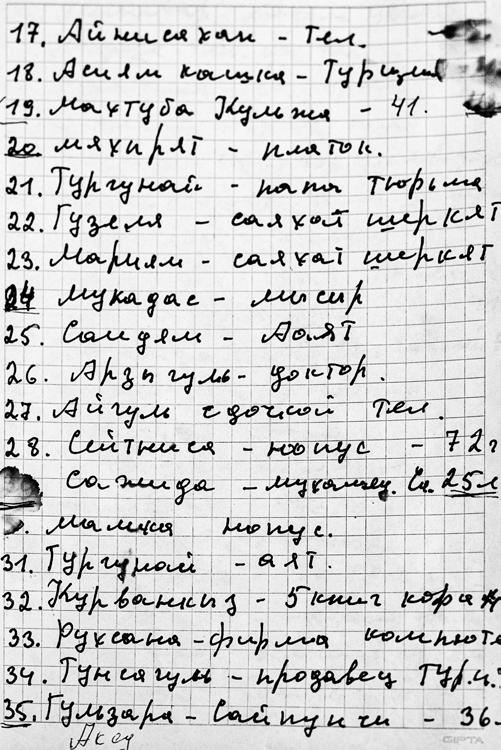 17. Айнисахан - тел.
18. Асиям кашка - Турция
19. Махтуба Кульжа - 41.
20 мяхирят - платок.
21. Тургунай - папа тюрьма
22. Гузеля - саяхат шеркят
23. Мариям - саяхат шеркят
24 мукадас - мисир
25. Саидям - Аят
26. Арзыгуль - доктор.
27. Айгуль с дочкой тел.
28. Сейтниса - нопус - 72г
Сажида - 25л
нопус.
31. Тургунай - аят.
32. Курванкыз - 5 книг
33. Рухсана - фирма компюте
34. Тунсагуль - продавец Тур.
35. Гульзара - Сайпунчи - 36.
Аксу
GIPTA